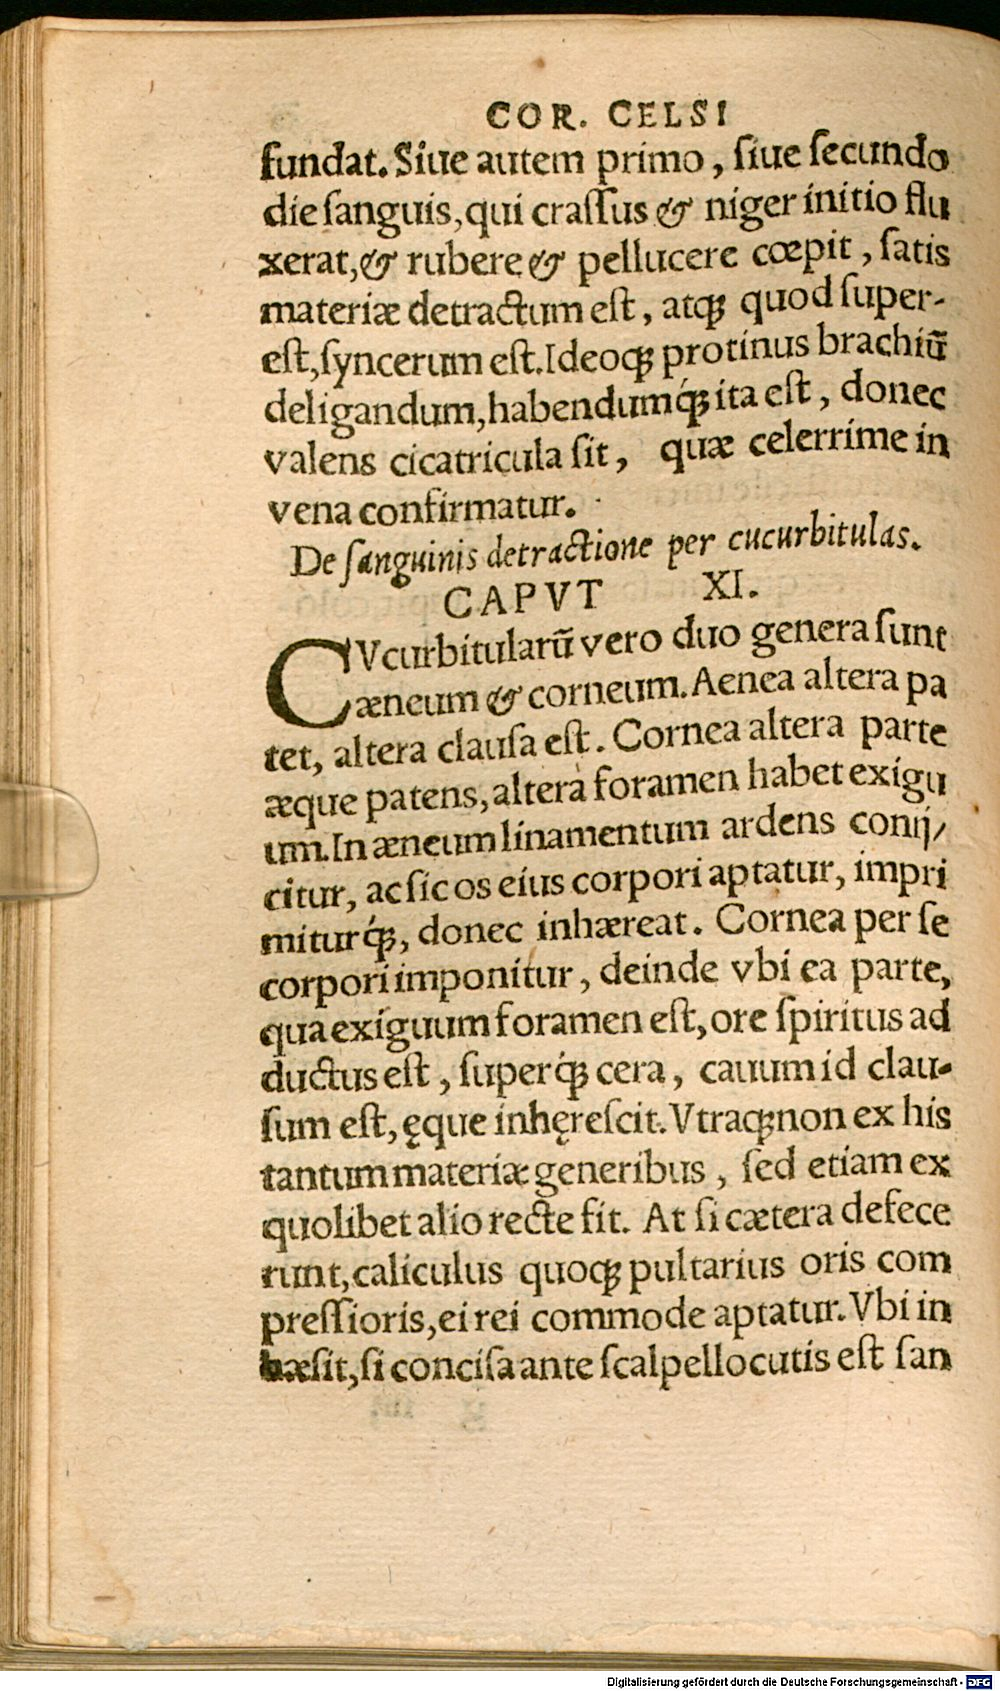 COR. CELSI
fundat. Siue autem primo, ſiue ſecundo
die ſanguis, qui craſſus & niger initio flu
xerat, & rubere & pellucere cœpit, ſatis
materiæ detractum eſt, atqꝫ quod ſuper-
eſt, ſyncerum eſt. Ideoqꝫ protinus brachiū
deligandum, habendumq́ꝫ ita eſt, donec
valens cicatricula ſit, quæ celerrime in
vena confirmatur.
De ſanguinis detractione per cucurbitulas.
CAPVT XI.
CVcurbitularū vero duo genera ſunt
æneum & corneum. Aenea altera pa
tet, altera clauſa eſt. Cornea altera parte
æque patens, altera foramen habet exigu
um. In æneum linamentum ardens conij/
citur, ac ſic os eius corpori aptatur, impri
miturq́ꝫ, donec inhæreat. Cornea per ſe
corpori imponitur, deinde vbi ea parte,
qua exiguum foramen eſt, ore ſpiritus ad
ductus eſt, ſuperq́ꝫ cera, cauum id clau-
ſum eſt, ęque inhęreſcit. Vtraqꝫ non ex his
tantum materiæ generibus, ſed etiam ex
quolibet alio recte fit. At ſi cætera defece
runt, caliculus quoqꝫ pultarius oris com
preſſioris, ei rei commode aptatur. Vbi in
hæsit, ſi conciſa ante ſcalpello cutis eſt ſan
Digitalisierung gefördert durch die Deutsche Forschungsgemeinschaft - DFG